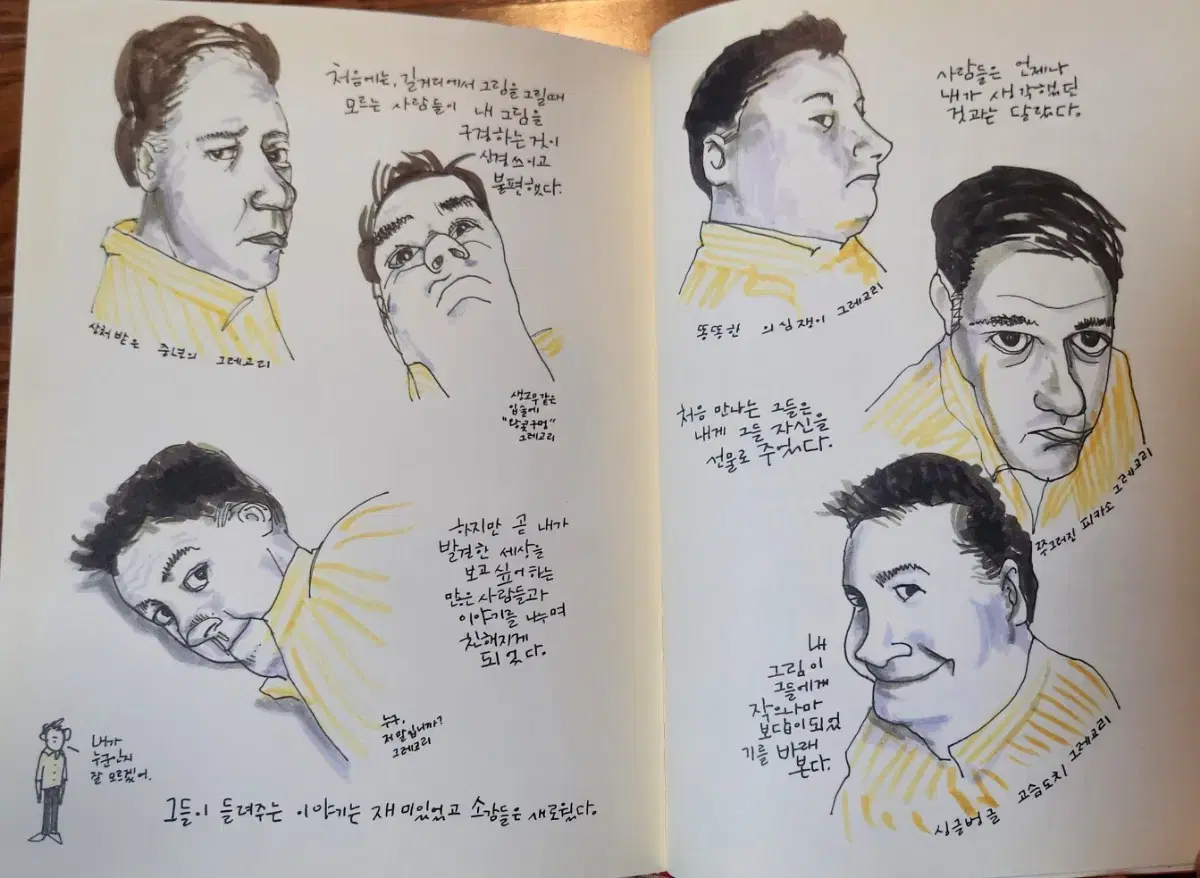 처음에는, 길거리에서 그림을 그릴때
모르는 사람들이 내 그림을
구경하는 것이
신경쓰이고
불편했다.
상처 받은 중년의 그레고리
생고무같은
입술에
"왕콧구멍"
그레고리
하지만 곧 내가
발견한 세상을
보고 싶어하는
많은 사람들과
이야기를 나누며
친해지게
되었다.
누구,
저 말입니까?
그레고리
내가
누군인지
잘 모르겠어.
그들이 들려주는 이야기는 재미있었고 소감들은 새로웠다.
사람들은 언제나
내가 생각했던
것과는 달랐다.
뚱뚱한 의심쟁이 그레고리
처음 만나는 그들은
내게 그들 자신을
선물로 주었다.
쭈그러진 피카소 그레고리
내
그림이
그들에게
작으나마
보답이 되었
기를 바래
본다.
싱글벙글 고슴도치 그레고리